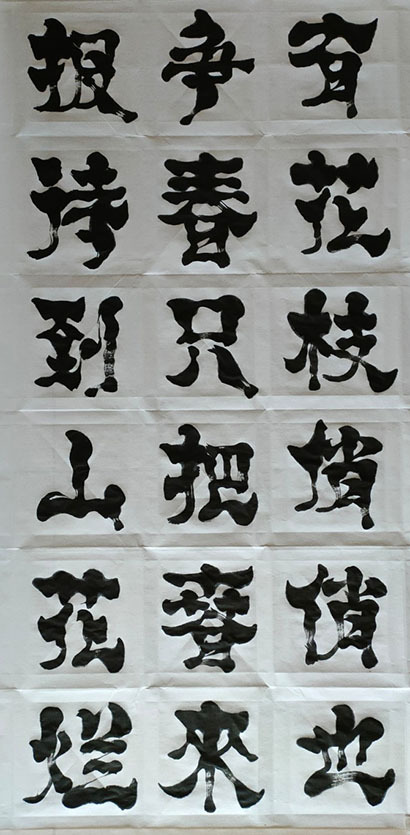 有花枝俏俏也
争春只把春來
报待到山花烂